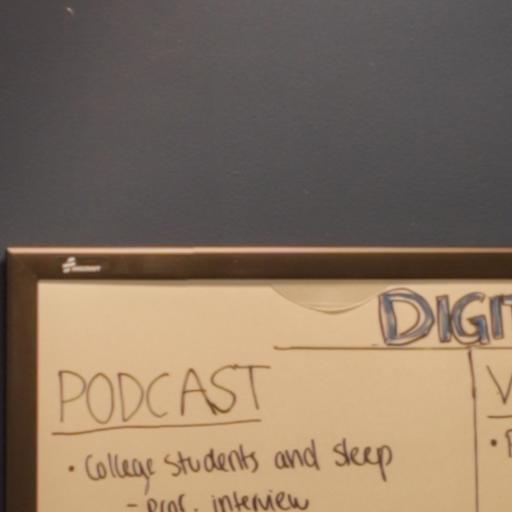 DIGIT
PODCAST
V
• College students and sleep
- prof. interview